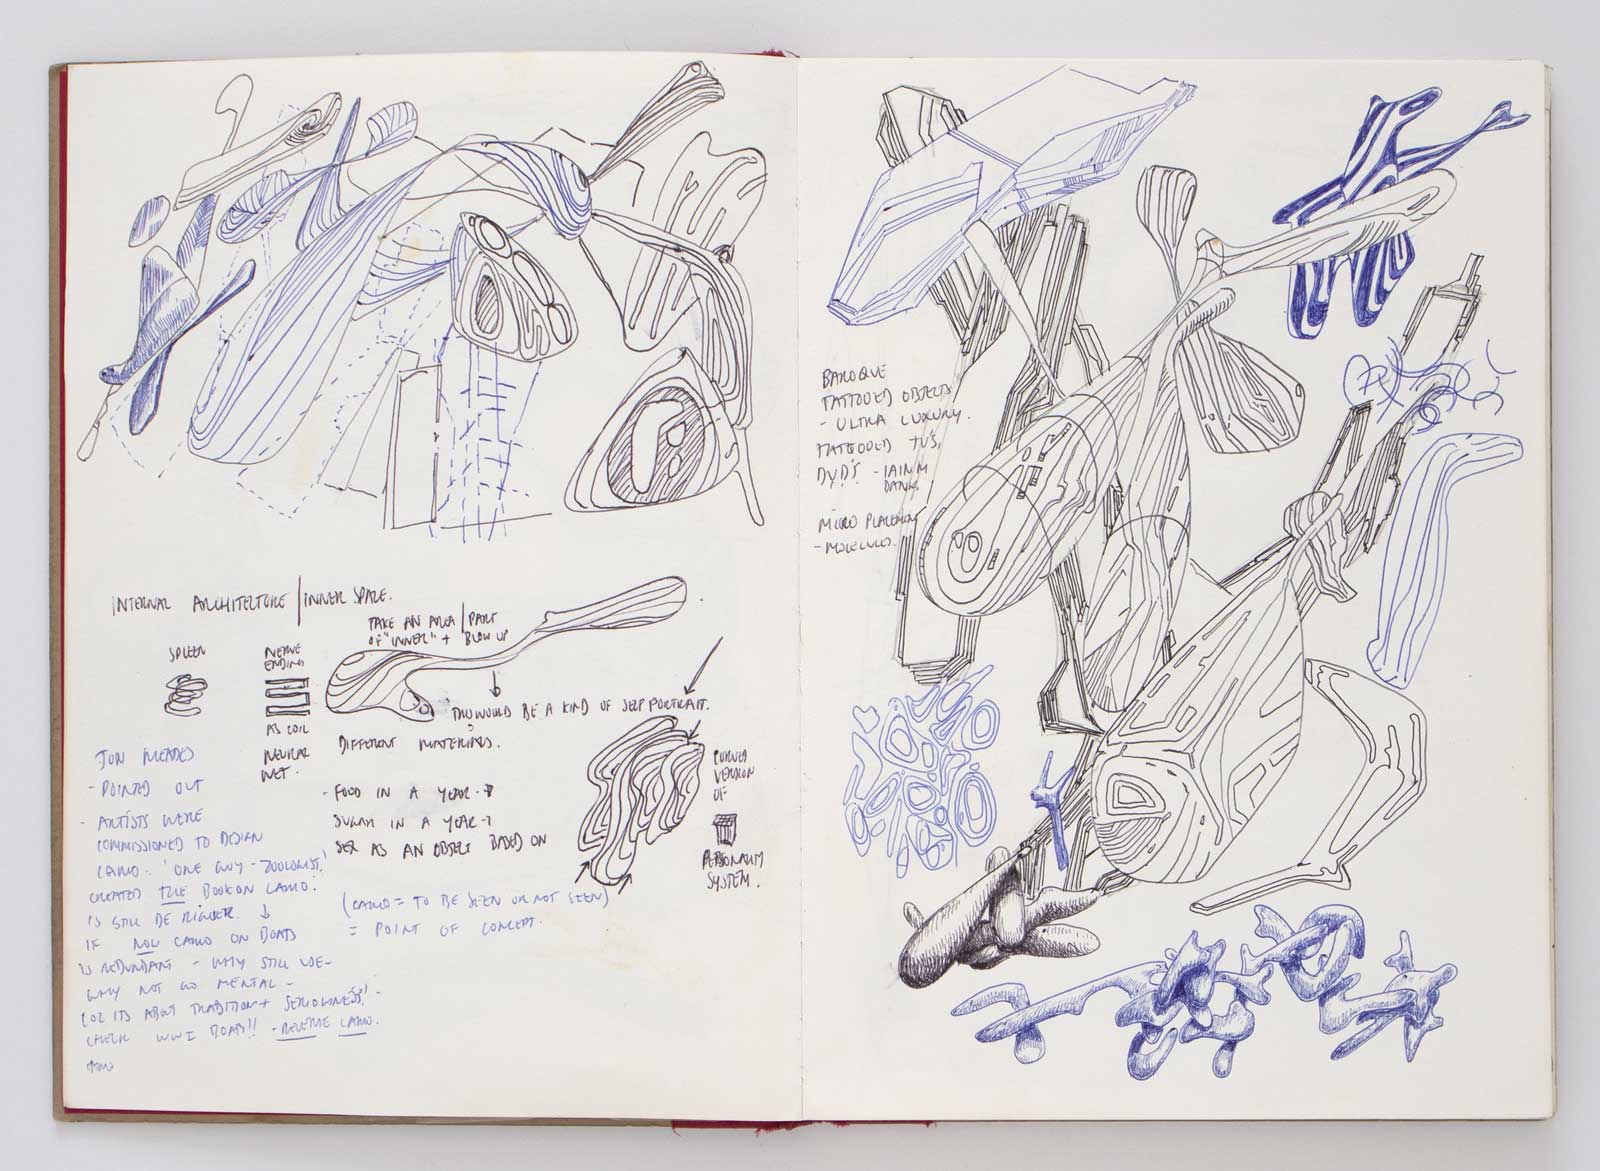 INTERNAL ARCHITECTURE | INNER SPACE.
TAKE AN AREA | PART
OF "INNER" + BLOW UP
SPLEEN
NERVE
ENDING
AS COIL
NEURAL
NET.
THIS WOULD BE A KIND OF SELF PORTRAIT.
DIFFERENT MATERIALS.
- FOOD IN A YEAR -
SUGAR IN A YEAR -
SEX AS AN OBJECT BASED ON
CURVED
VERSION
OF
PERSONALITY
SYSTEM.
(CAMO = TO BE SEEN OR NOT SEEN)
= POINT OF CONCEPT.
JON MEADES
- POINTED OUT
- ARTISTS WERE
COMMISSIONED TO DESIGN
CAMO. 'ONE GUY - ZOOLOGIST!'
CREATED THE BOOK ON CAMO.
IS STILL DE RIGUER.
IF NOW CAMO ON BOATS
IS REDUNDANT - WHY STILL USE -
WHY NOT GO MENTAL -
COZ ITS ABOUT TRADITION + SERIOUSNESS! -
CHECK WWI BOATS!! - REVERSE CAMO.
BAROQUE
TATTOOED OBJECTS
- ULTRA LUXURY.
TATTOOED TV'S,
DVD'S - IAIN M
BANK
MICRO PLACEMENT
- MOLECULES.